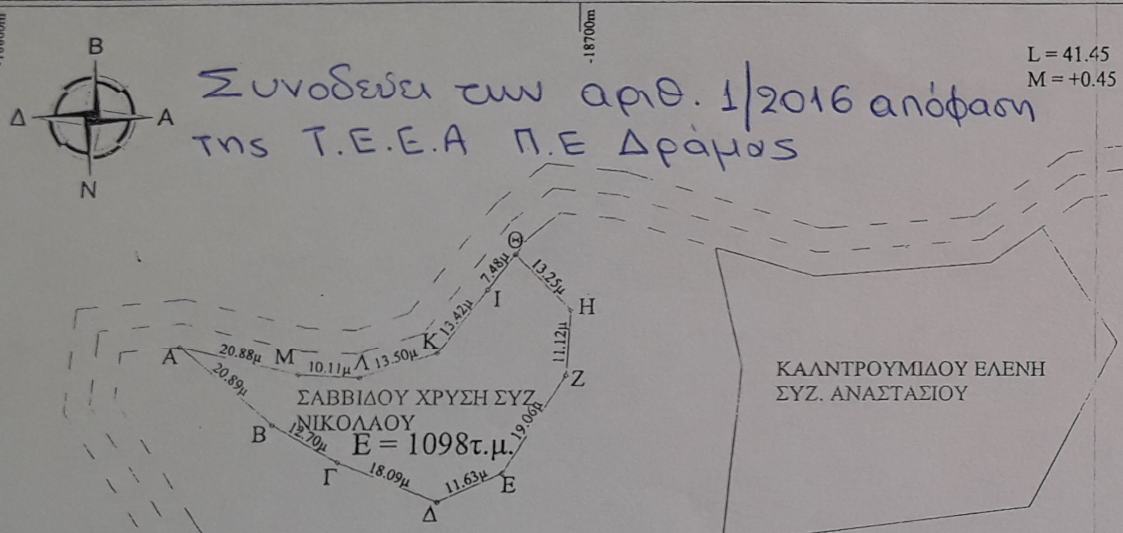 -18700m
L = 41.45
M = +0.45
Β
Δ
Α
Ν
Συνοδεύει την αριθ. 1/2016 απόφαση
της Τ.Ε.Ε.Α Π.Ε Δράμας
Θ
7.48μ
13.25μ
Ι
Η
13.42μ
11.12μ
Κ
Α
20.88μ
Μ
10.11μ
Λ
13.50μ
Ζ
20.89μ
ΣΑΒΒΙΔΟΥ ΧΡΥΣΗ ΣΥΖ
ΝΙΚΟΛΑΟΥ
19.06μ
Β
12.70μ
Ε = 1098τ.μ.
Γ
18.09μ
11.63μ
Ε
Δ
ΚΑΛΝΤΡΟΥΜΙΔΟΥ ΕΛΕΝΗ
ΣΥΖ. ΑΝΑΣΤΑΣΙΟΥ